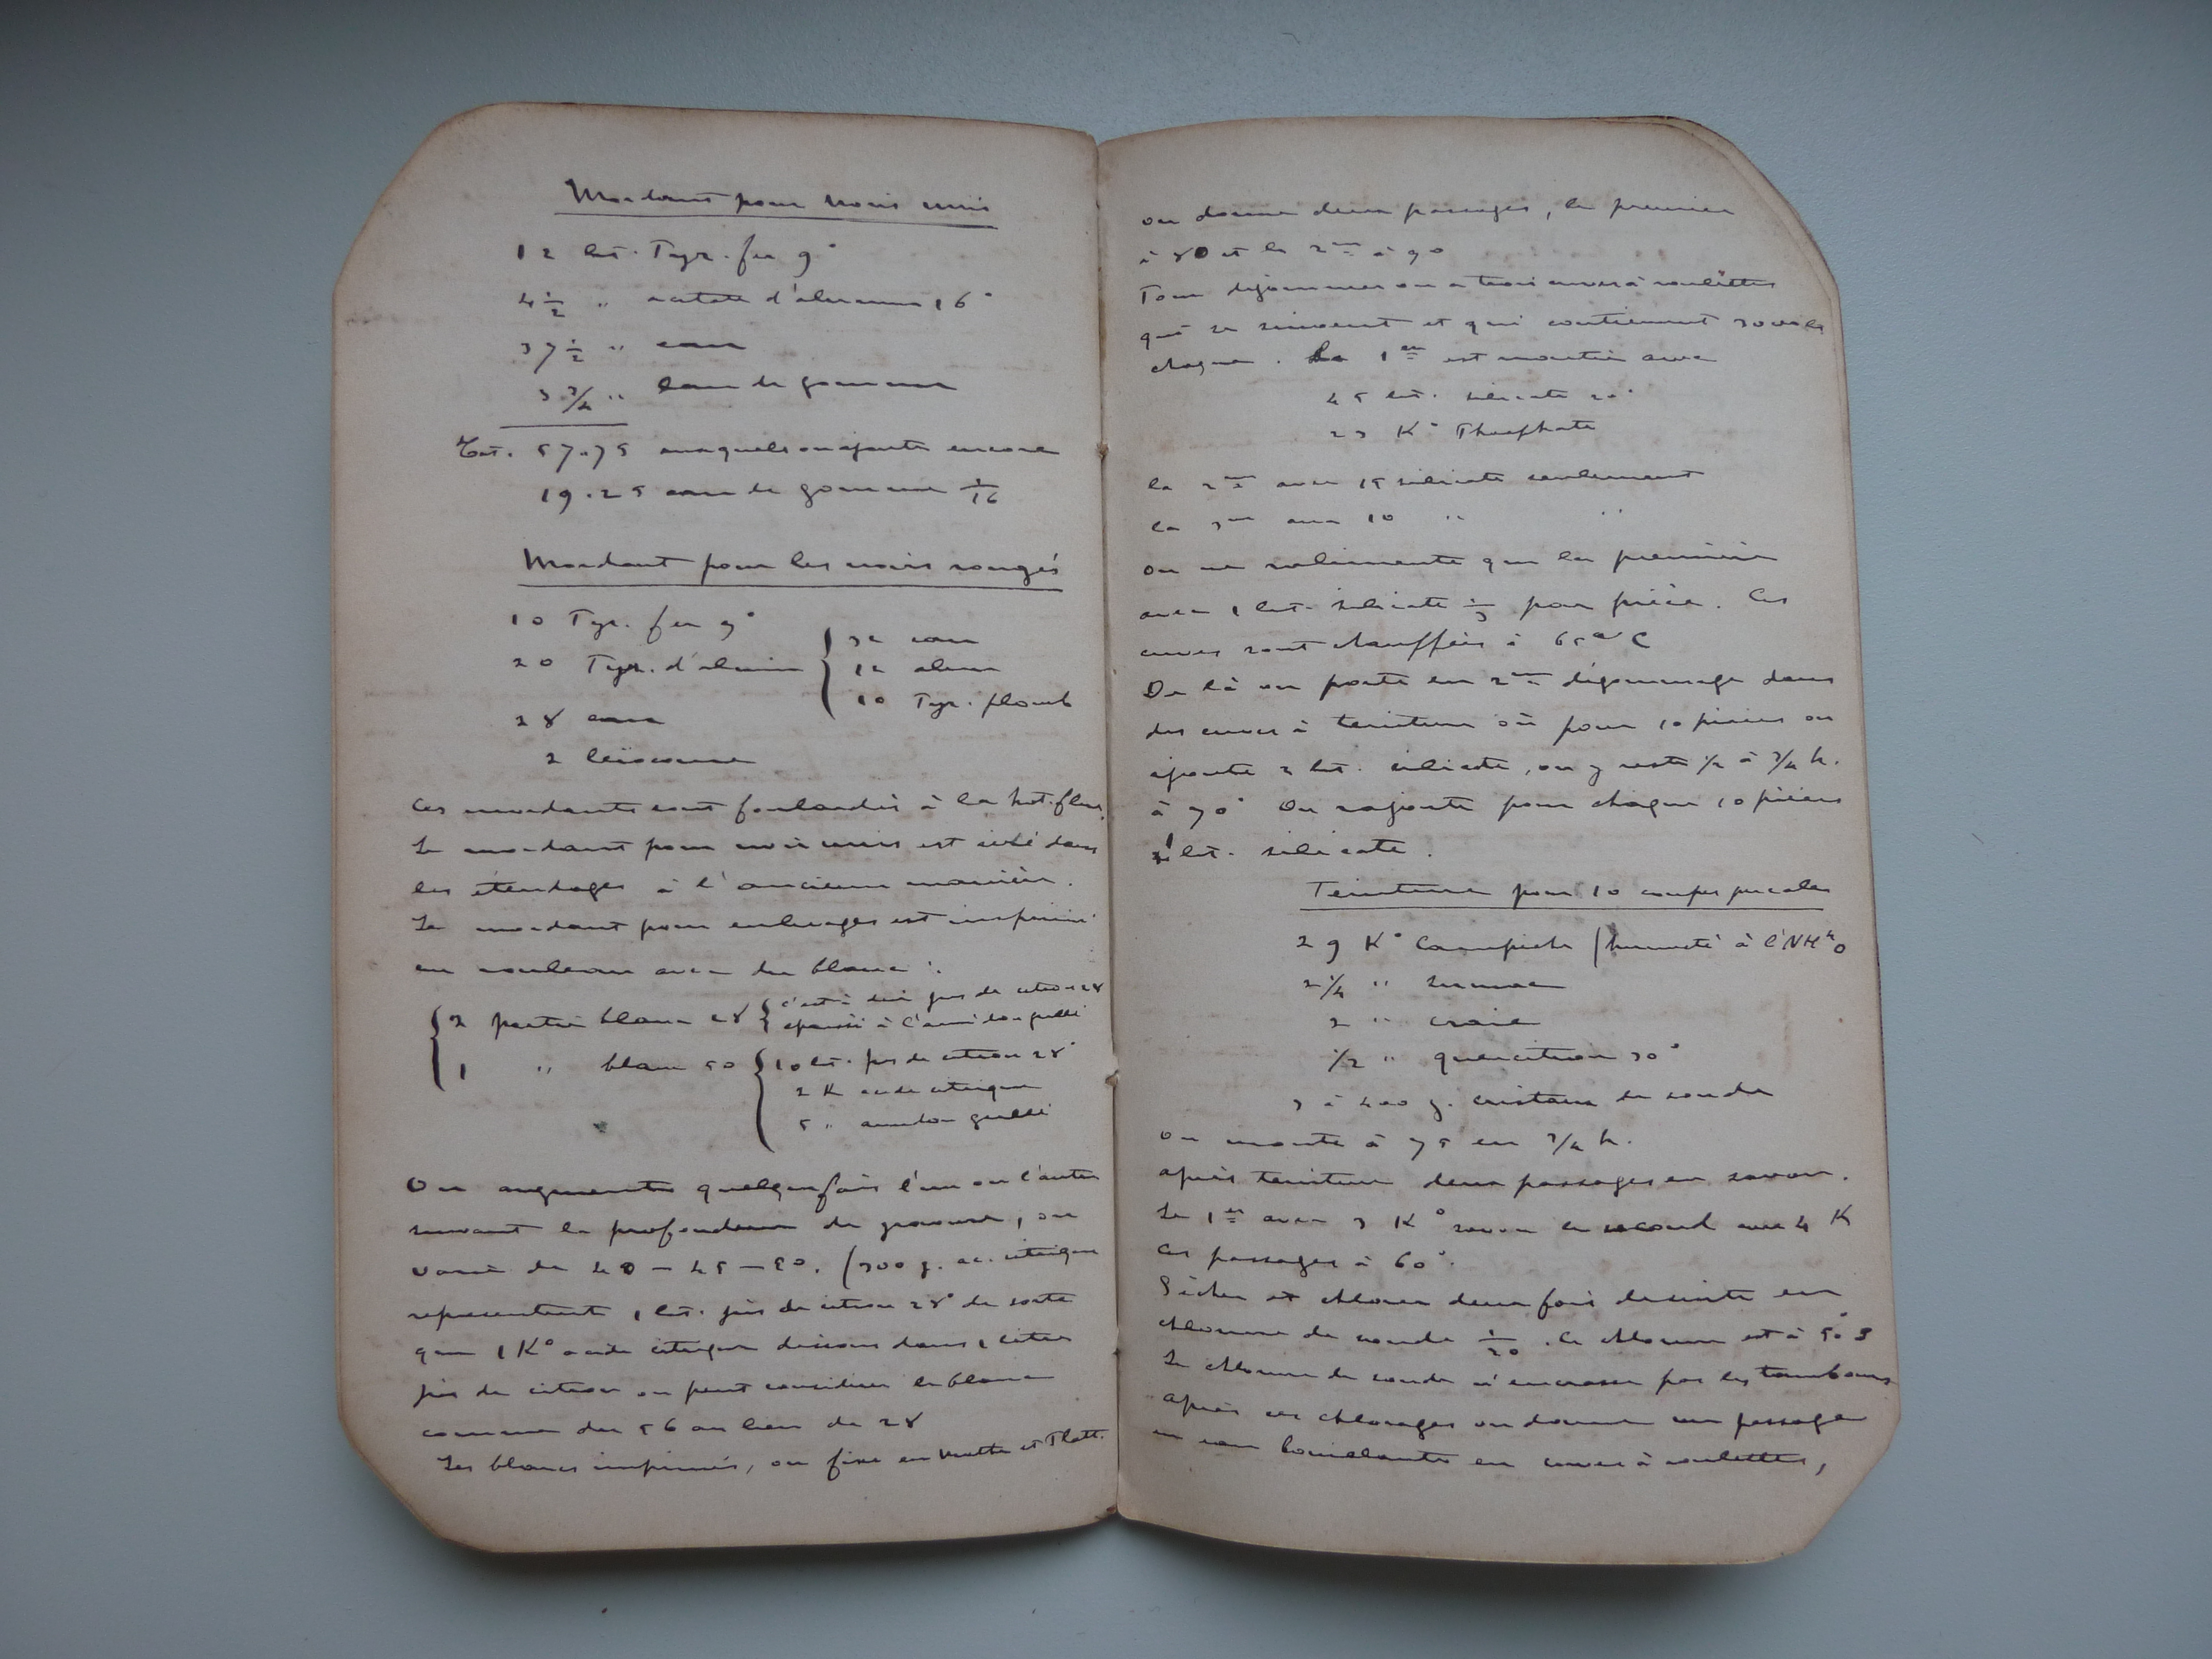 Mordant pour noirs unis
12 lit. Pyr. fer 9°
4 1/2 " acetate d'alumine 16°
37 1/2 " eau
3 3/4 " eau de gomme
Tot. 57.75 auxquels on ajoute encore
19.25 eau de gomme 1/16
Mordant pour les noirs rongés
10 Pyr. fer 9°
20 Pyr. d'alumin { 32 eau
12 alun
10 Pyr. plomb
28 eau
2 leïocome
Ces mordants sont foulardés à la hot-flue.
Le mordant pour noir unis est fixé dans
les étendages à l'ancienne manière.
Le mordant pour enlevages est imprimé
en rouleau avec du blanc :
2 partie blanc 28 { c'est à dire jus de citron 28
épaissi à l'amidon grillé
1 " blanc 50 { 10 lit. jus de citron 28°
2 K acide citrique
5 " amidon grillé
On augmente quelquefois l'un ou l'autre
suivant la profondeur de gravure, on
varie de 40 – 45 – 50. (300 g. ac. citrique
representent 1 lit. jus de citron 28° de sorte
que 1 K° acide citrique dissous dans 1 litre
jus de citron on peut considérer le blanc
comme du 56 au lieu de 28
Les blancs imprimés, on fixe en Mather et Platt.
on donne deux passages, le premier
à 80 et le 2me à 90
Pour dégommer on a trois cuves à roulettes
qui se suivent et qui contiennent
chaque. La 1er est montée avec
45 lit. silicate 20°
23 K° Phosphate
la 2me avec 15 silicate seulement
la 3me avec 10 " "
on ne ralimente que la première
avec 1 lit. silicate 1/3 par pièce. Ces
cuves sont chauffées à 65° C
De là on porte en 2me dégommage dans
des cuves à teinture où pour 10 pièces on
ajoute 2 lit. silicate, on y reste 1/2 à 3/4 h.
à 70° On rajoute pour chaque 10 pièces
1 lit. silicate.
Teinture pour 10 coupes percales
29 K° Campêche (humecté à l'NH4O
2 1/4 " sumac
2 " craie
1/2 " quercitron 30°
3 à 400 g. cristaux de soude
on monte à 75 en 3/4 h.
après teinture deux passages en savon.
Le 1er avec 3 K° savon le second avec 4 K
Ces passages à 60°.
Sécher et chlorer deux fois de suite en
chlorure de soude 1/20. le chlorure est à 5°3
Le chlorure de soude n'encrasse pas les tambours
après ces chlorages on donne un passage
en eau bouillante en cuves à roulettes,